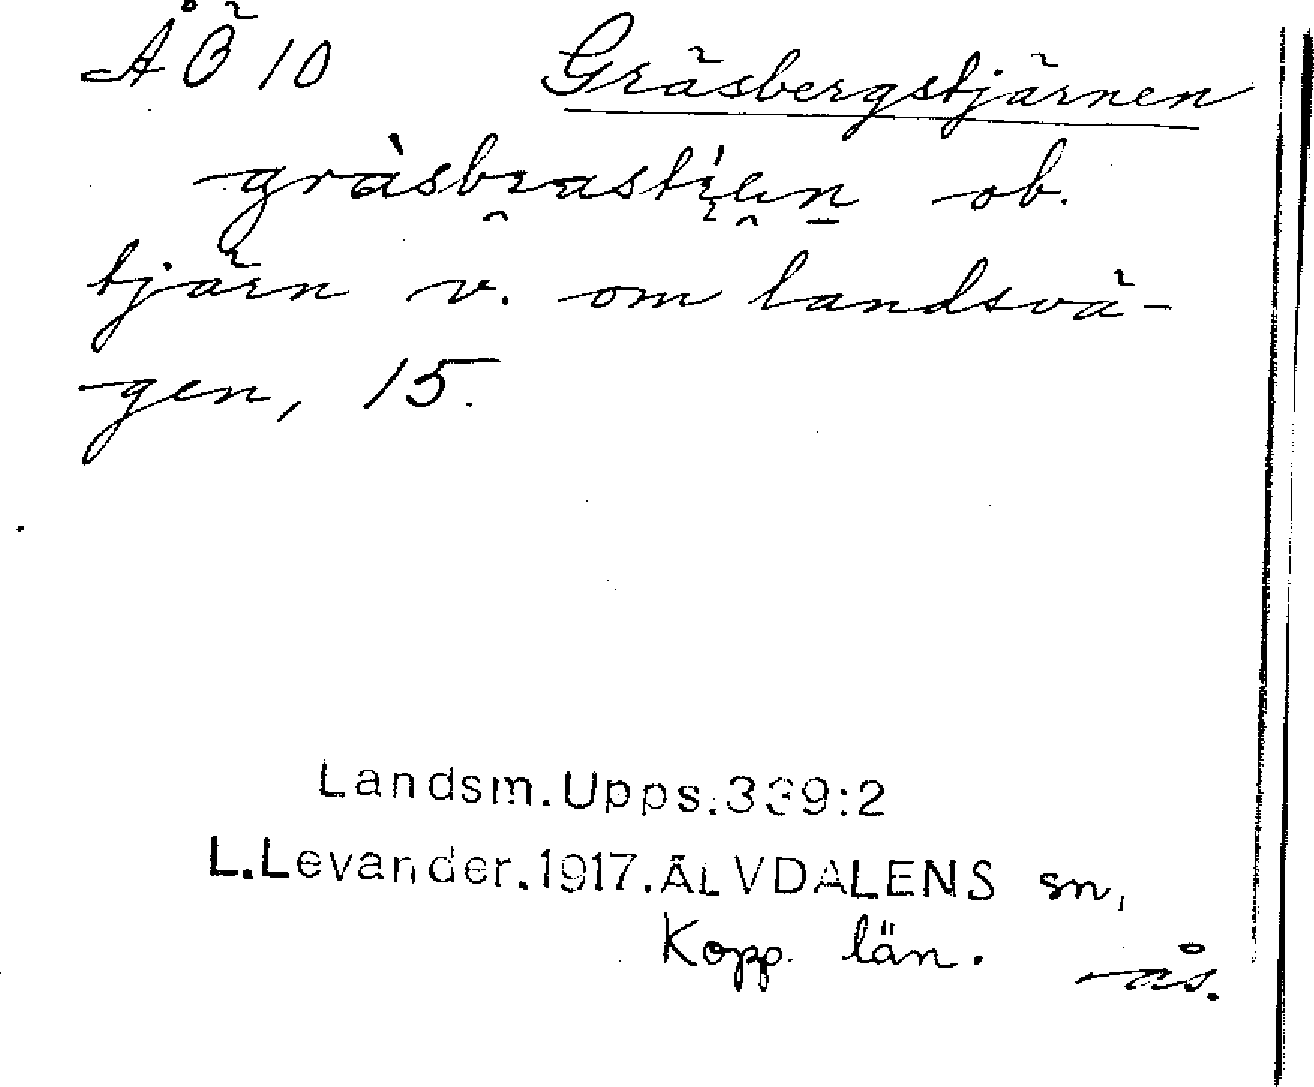 ÅÖ 10 Gräsbergstjärnen
ob.
tjärn v. om landsvä-
gen, 15.
Landsm.Upps.339:2
L.Levander.1917.ÄLVDALENS sn,
Kopp. län. ås.